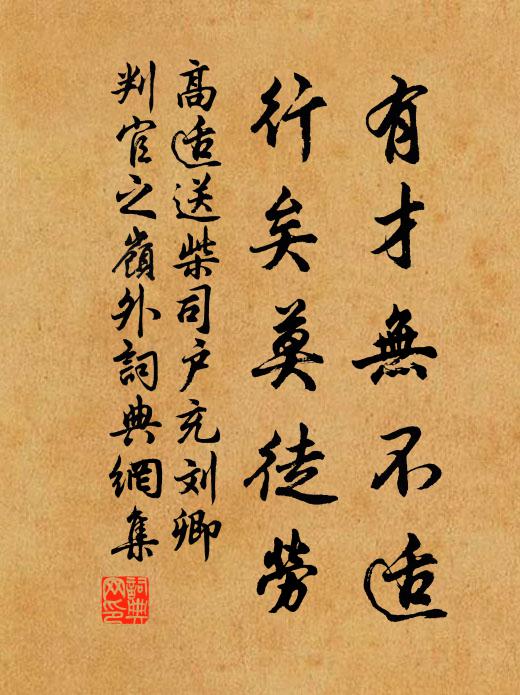 有才無不适
行矣莫徒勞
高适送柴司户充刘卿
判官之嶺外詞典網集
詞典网印